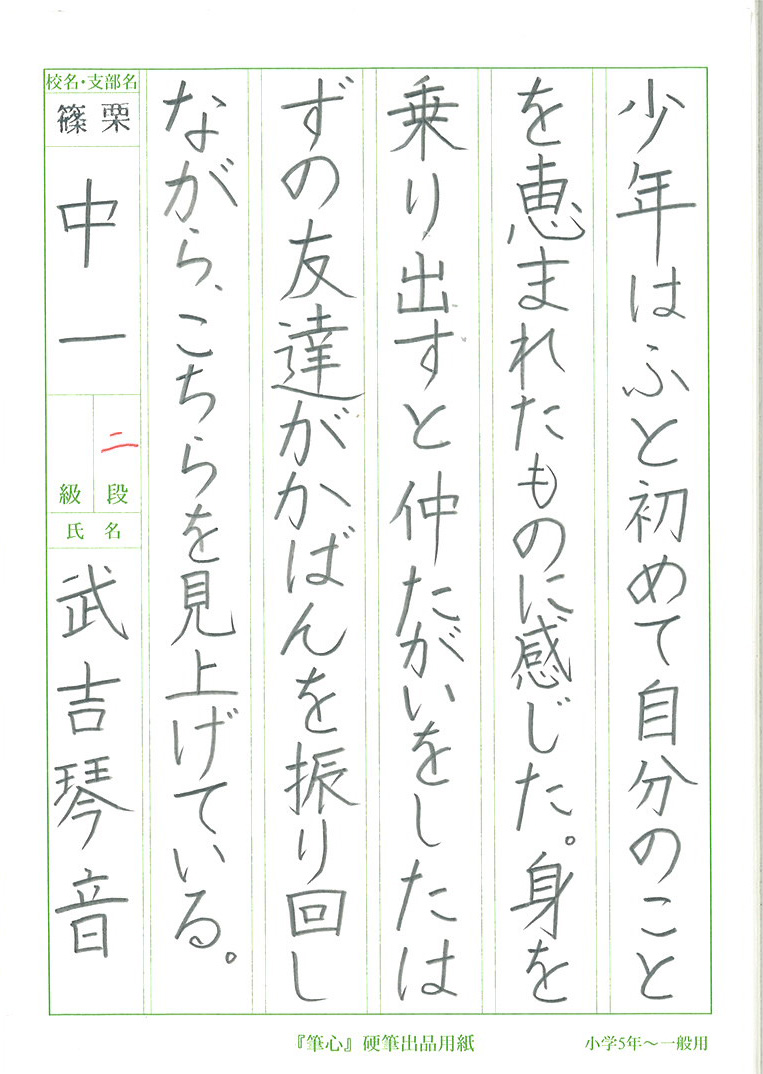 少年はふと初めて自分のこと
を恵まれたものに感じた。身を
乗り出すと仲たがいをしたは
ずの友達がかばんを振り回し
ながら、こちらを見上げている。
校名・支部名
篠栗
中一
二段
級
氏名
武吉琴音
『筆心』硬筆出品用紙
小学5年~一般用